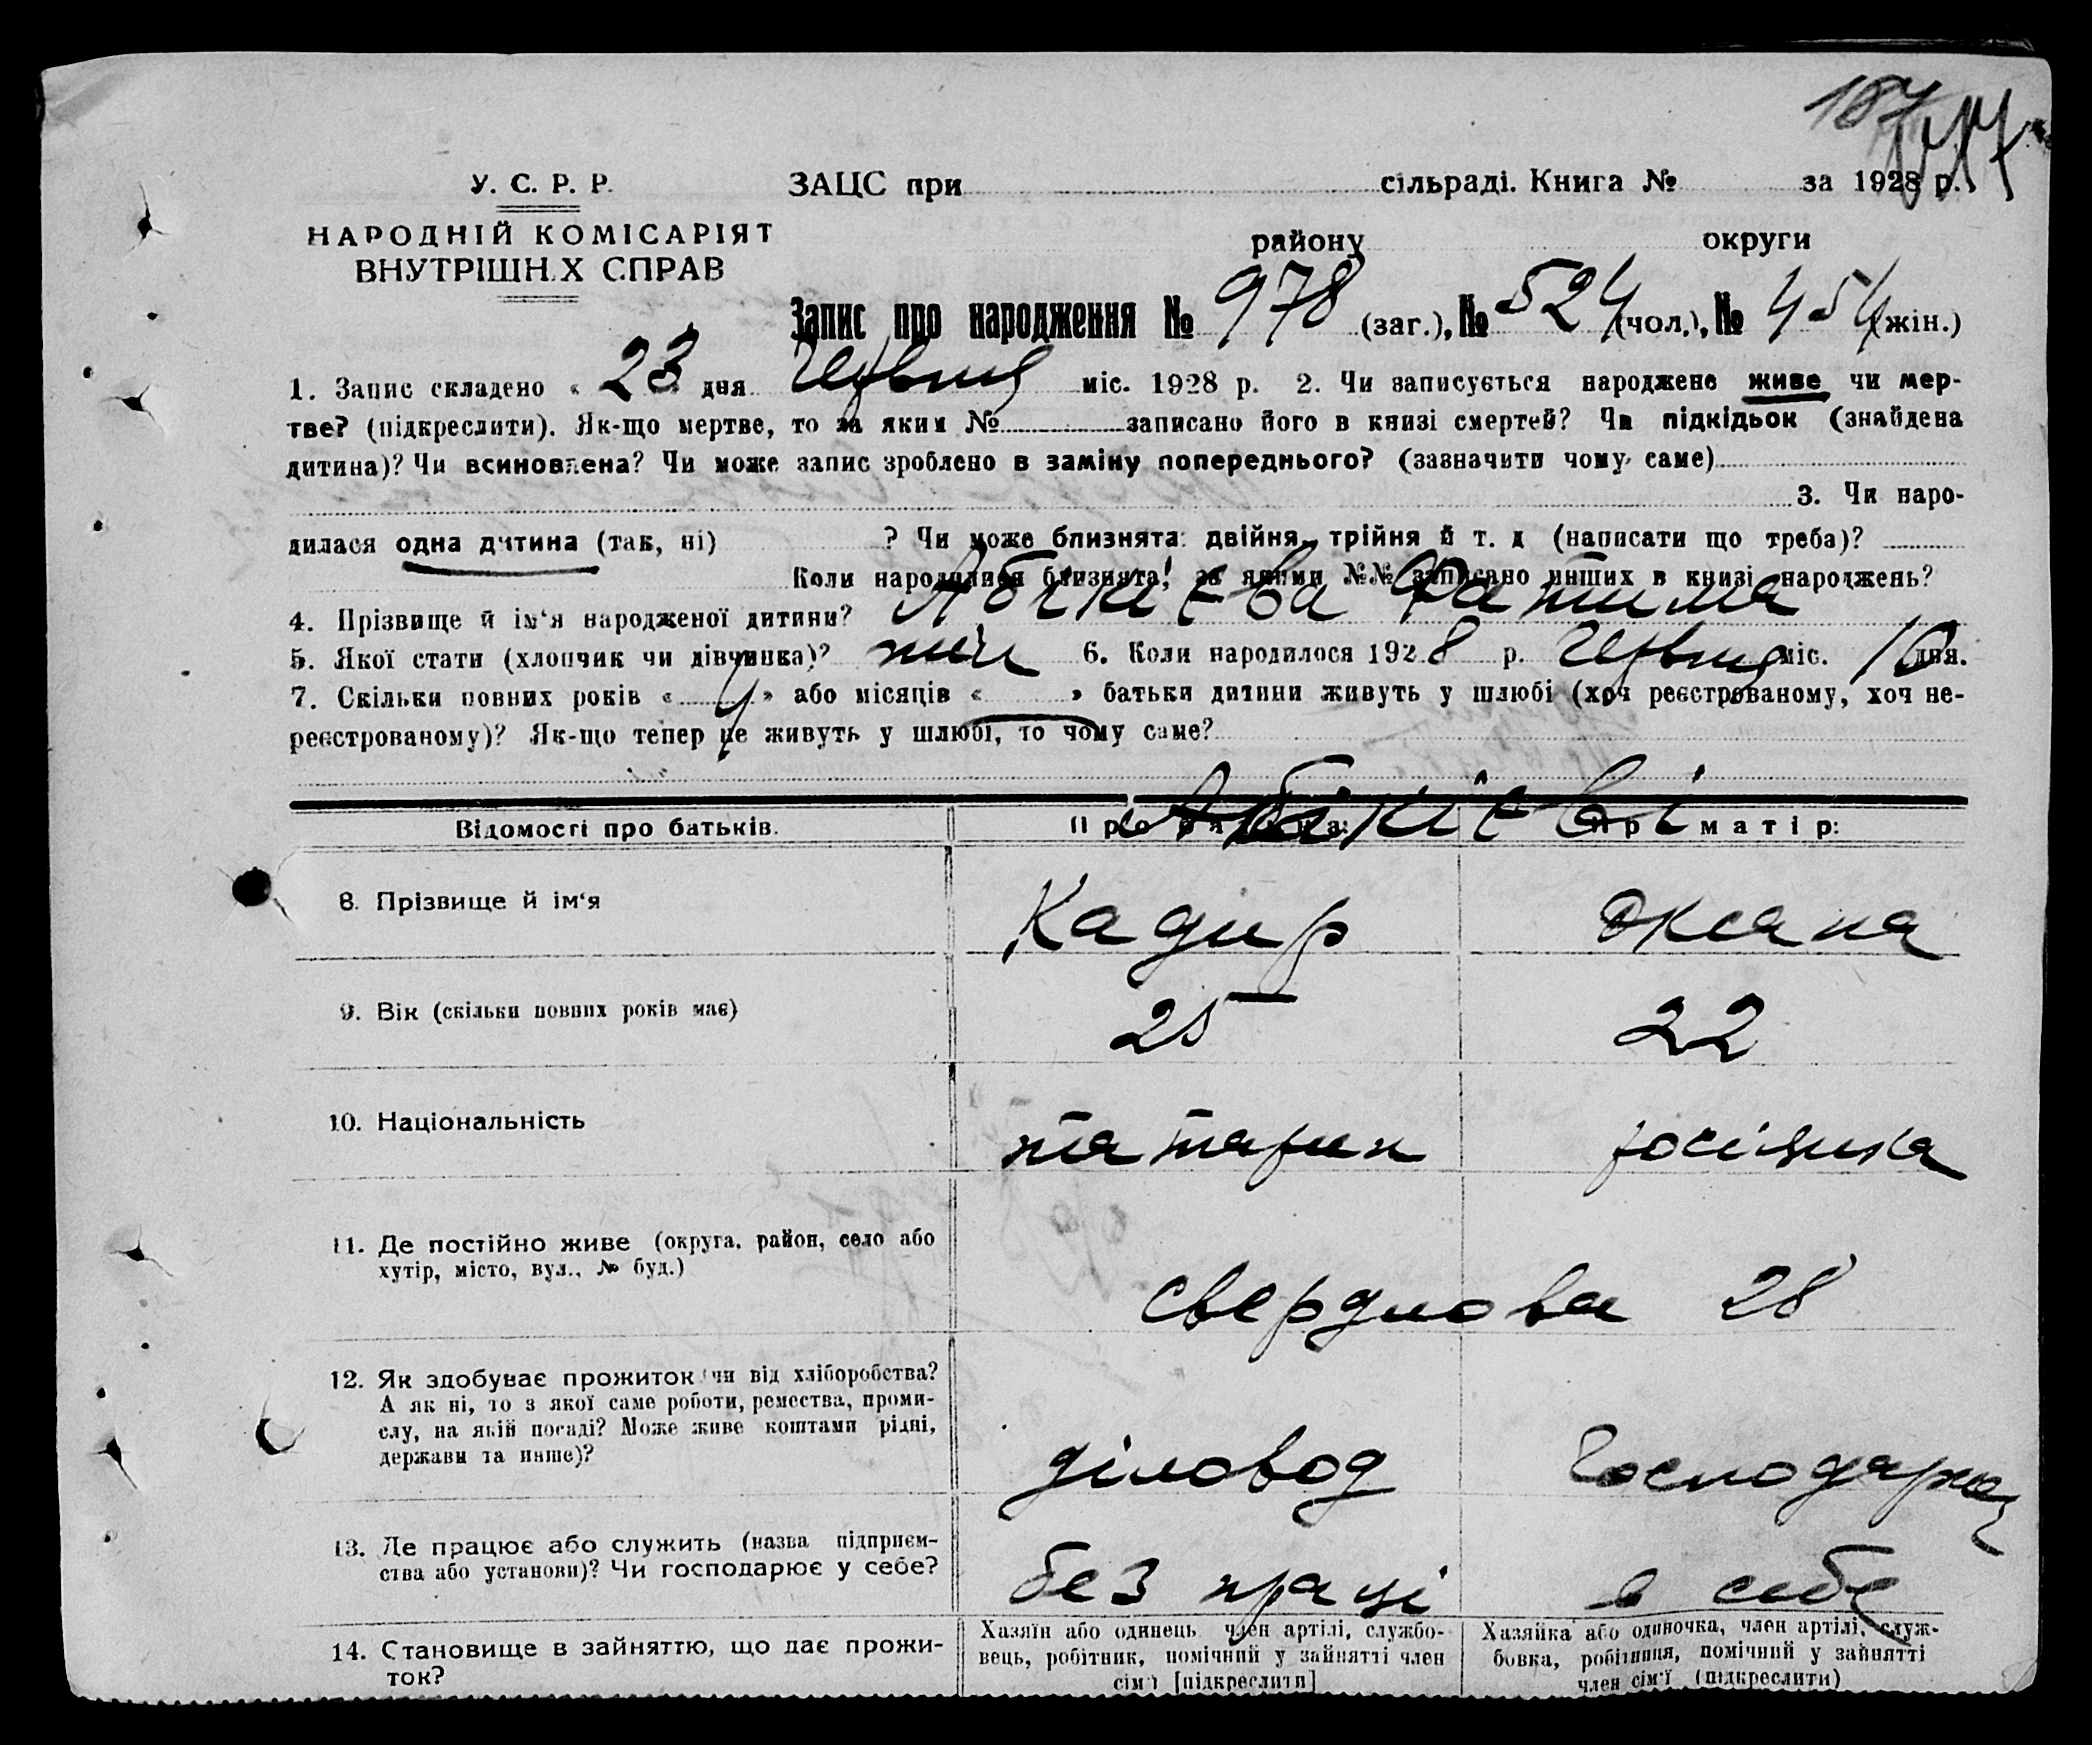 187
У. С. Р. Р.
ЗАЦС при сільраді. Книга № за 1928 р.
НАРОДНІЙ КОМІСАРІЯТ
ВНУТРІШН.Х СПРАВ
району округи
Запис про народження № 978 (заг.), № 524 (чол.), № 454 (жін.)
1. Запис складено « 23 дня червня міс. 1928 р. 2. Чи записується народжене живе чи мер-
тве? (підкреслити). Як-що мертве, то за яким № записано його в книзі смертей? Чи підкідьок (знайдена
дитина)? Чи всиновлена? Чи може запис зроблено в заміну попереднього? (зазначити чому саме)
3. Чи наро-
дилася одна дитина (так, ні) ? Чи може близнята: двійня, трійня й т. д (написати що треба)?
Коли народилися близнята, за якими №№ записано инших в книзі народжень?
4. Прізвище й ім'я народженої дитини? Абікієва Фатима
5. Якої стати (хлопчик чи дівчинка)? жін 6. Коли народилося 1928 р. червня міс. 10 дня.
7. Скільки повних років « » або місяців « » батьки дитини живуть у шлюбі (хоч реєстрованому, хоч не-
реєстрованому)? Як-що тепер не живуть у шлюбі, то чому саме?
Абікієві
Відомості про батьків. Про батька: Про матір:
8. Прізвище й ім'я Кадир Оксана
9. Вік (скільки повних років має) 25 22
10. Національність татарин росіянка
11. Де постійно живе (округа, район, село або
хутір, місто, вул., № буд.)
свердлова 28
12. Як здобуває прожиток чи від хліборобства?
А як ні, то з якої саме роботи, ремества, проми-
слу, на якій посаді? Може живе коштами рідні,
держави та инше)?
діловод Господарює
13. Де працює або служить (назва підприєм-
ства або установи)? Чи господарює у себе?
без праці в себе
14. Становище в зайняттю, що дає прожи-
ток?
Хазяїн або одинець член артілі, службо-
вець, робітник, помічний у зайнятті член
сім'ї [підкреслити]
Хазяйка або одиночка, член артілі, служ-
бовка, робітниця, помічний у зайнятті
член сім'ї (підкреслити)